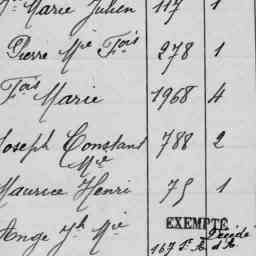 Marie Julien 117 1
Pierre Mie Fois 278 1
Fois Marie 1968 4
Joseph Constand Mie 788 2
Maurice Henri 75 1
EXEMPTÉ
Ange Jh Mie 167 Décédé